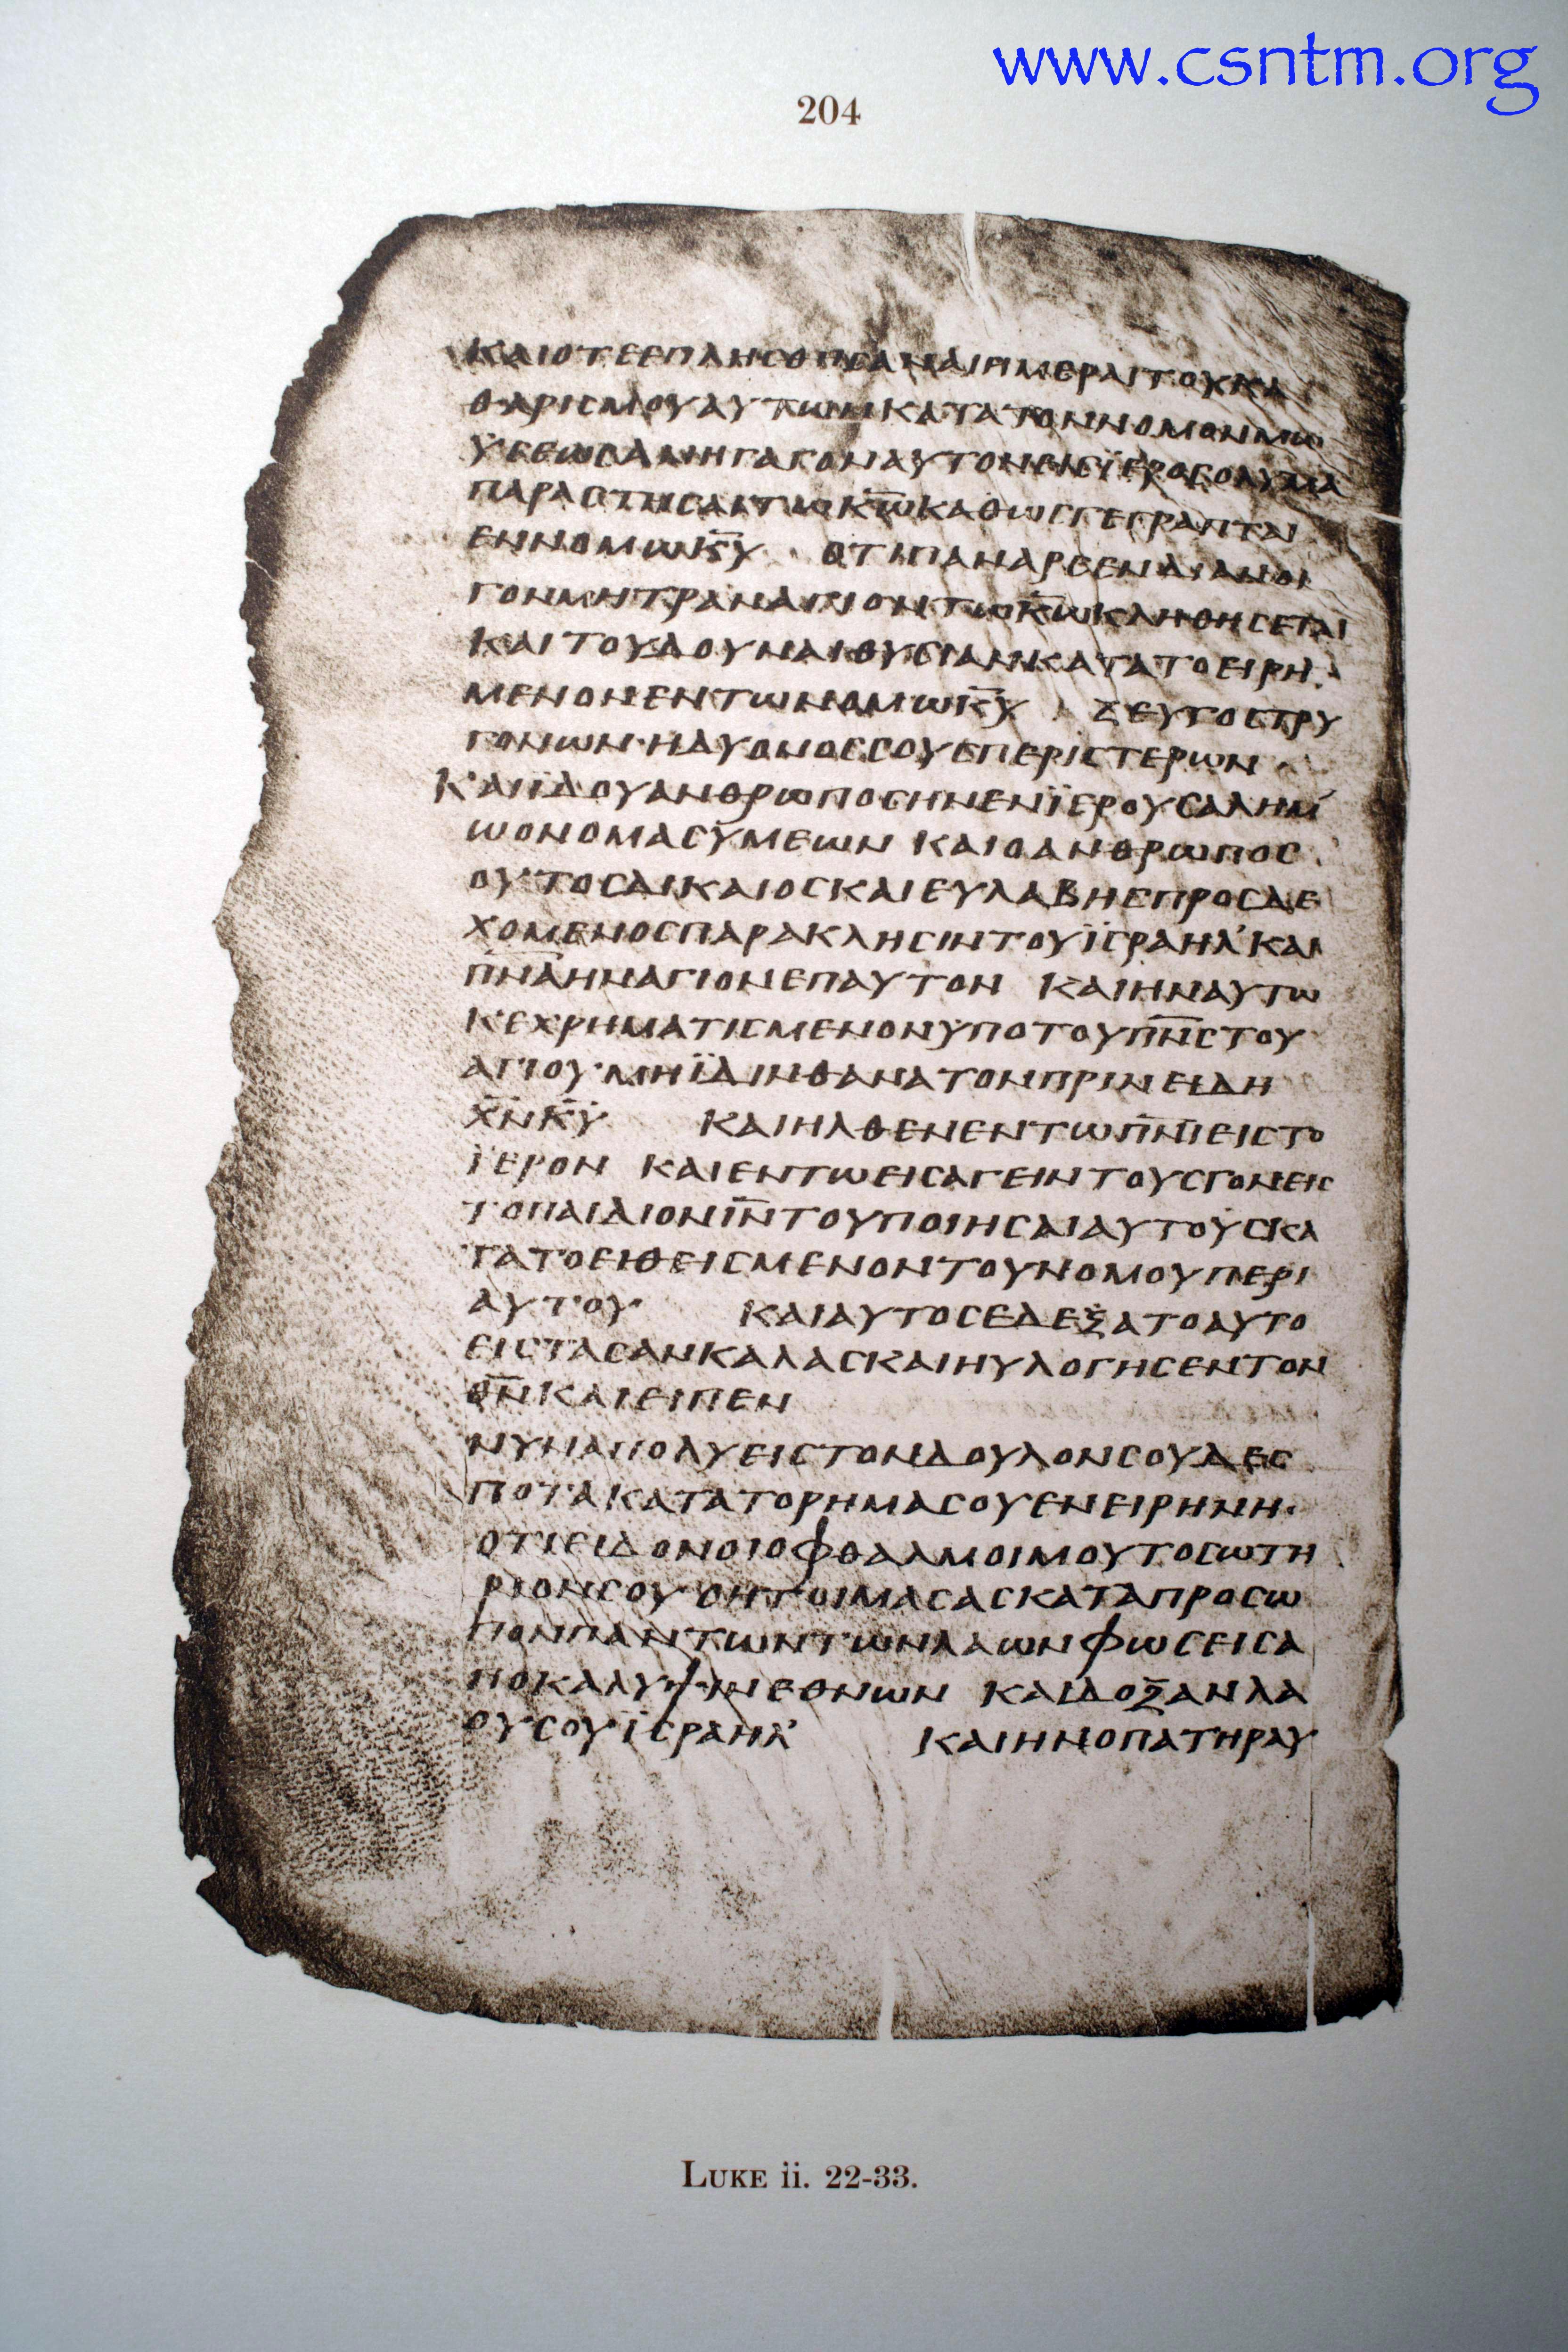 www.csntm.org
204
ΚΑΙΟΤΕΕΠΛΗСΘΗСΑΝΑΙΗΜΕΡΑΙΤΟΥΚΑ
ΘΑΡΙСΜΟΥΑΥΤΩΝΚΑΤΑΤΟΝΝΟΜΟΝΜΩ
ΫСΕΩСΑΝΗΓΑΓΟΝΑΥΤΟΝΕΙСΪΕΡΟСΟΛΥΜΑ
ΠΑΡΑСΤΗСΑΙΤΩΚ̅Ω̅ΚΑΘΩСΓΕΓΡΑΠΤΑΙ
ΕΝΝΟΜΩΚ̅Υ̅ · ΟΤΙΠΑΝΑΡСΕΝΔΙΑΝΟΙ
ΓΟΝΜΗΤΡΑΝΑΓΙΟΝΤΩΚ̅Ω̅ΚΛΗΘΗСΕΤΑΙ
ΚΑΙΤΟΥΔΟΥΝΑΙΘΥСΙΑΝΚΑΤΑΤΟΕΙΡΗ
ΜΕΝΟΝΕΝΤΩΝΟΜΩΚ̅Υ̅ ΖΕΥΓΟСΤΡΥ
ΓΟΝΩΝ·ΗΔΥΟΝΟССΟΥСΠΕΡΙСΤΕΡΩΝ
ΚΑΙΪΔΟΥΑΝΘΡΩΠΟСΗΝΕΝΪΕΡΟΥСΑΛΗΜ
ΩΟΝΟΜΑСΥΜΕΩΝ ΚΑΙΟΑΝΘΡΩΠΟС
ΟΥΤΟСΔΙΚΑΙΟСΚΑΙΕΥΛΑΒΗСΠΡΟСΔΕ
ΧΟΜΕΝΟСΠΑΡΑΚΛΗСΙΝΤΟΥΪСΡΑΗΛ’ΚΑΙ
Π̅Ν̅Α̅ΗΝΑΓΙΟΝΕΠΑΥΤΟΝ ΚΑΙΗΝΑΥΤΩ
ΚΕΧΡΗΜΑΤΙСΜΕΝΟΝΥΠΟΤΟΥΠ̅Ν̅СΤΟΥ
ΑΓΙΟΥ·ΜΗΪΔΙΝΘΑΝΑΤΟΝΠΡΙΝΕΙΔΗ
Χ̅Ν̅Κ̅Υ̅ ΚΑΙΗΛΘΕΝΕΝΤΩΠ̅Ν̅Ι̅ΕΙСΤΟ
ΪΕΡΟΝ ΚΑΙΕΝΤΩΕΙСΑΓΕΙΝΤΟΥСΓΟΝΕΙС
ΤΟΠΑΙΔΙΟΝΙ̅Ν̅ΤΟΥΠΟΙΗСΑΙΑΥΤΟΥСΚΑ
ΤΑΤΟΕΙΘΕΙСΜΕΝΟΝΤΟΥΝΟΜΟΥΠΕΡΙ
ΑΥΤΟΥ ΚΑΙΑΥΤΟСΕΔΕΞΑΤΟΑΥΤΟ
ΕΙСΤΑСΑΝΚΑΛΑСΚΑΙΗΥΛΟΓΗСΕΝΤΟΝ
Θ̅Ν̅ΚΑΙΕΙΠΕΝ
ΝΥΝΑΠΟΛΥΕΙСΤΟΝΔΟΥΛΟΝСΟΥΔΕС
ΠΟΤΑΚΑΤΑΤΟΡΗΜΑСΟΥΕΝΕΙΡΗΝΗ·
ΟΤΙΕΙΔΟΝΟΙΟΦΘΑΛΜΟΙΜΟΥΤΟСΩΤΗ
ΡΙΟΝСΟΥ·ΟΗΤΟΙΜΑСΑСΚΑΤΑΠΡΟСΩ
ΠΟΝΠΑΝΤΩΝΤΩΝΛΑΩΝΦΩСΕΙСΑ
ΠΟΚΑΛΥΨΙΝΕΘΝΩΝ ΚΑΙΔΟΞΑΝΛΑ
ΟΥСΟΥΪСΡΑΗΛ’ ΚΑΙΗΝΟΠΑΤΗΡΑΥ
LUKE ii. 22-33.